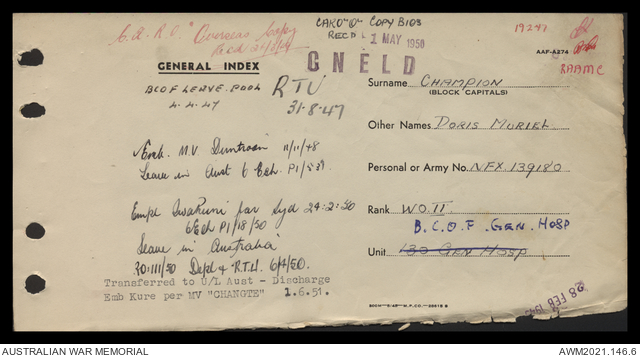 C.A.R.O. Overseas Copy
CARO "O" COPY B103
RECD 1 MAY 1950
19247
AAF-A274
RAAMC
GENERAL INDEX
CNELD
BCOF LEAVE. POOL
4.4.47
RTU
31-8-47
Surname CHAMPION
(BLOCK CAPITALS)
Other Names DORIS MURIEL
Emb. M.V. Duntroon 11/11/48
Leave in Aust 6 Ech.
Personal or Army No. NFX. 139180
Empl Iwakuni for Syd 24-2-50
6 Ech P1/18/50
Leave in Australia
Rank W.O. II
B.C.O.F. GEN. HOSP
Unit 130 GEN HOSP
RO:111/50 Depd & R.T.U. 6/4/50.
Transferred to U/L Aust - Discharge
Emb Kure per MV "CHANGTE" 1.6.51.
28 FEB
AUSTRALIAN WAR MEMORIAL
AWM2021.146.6